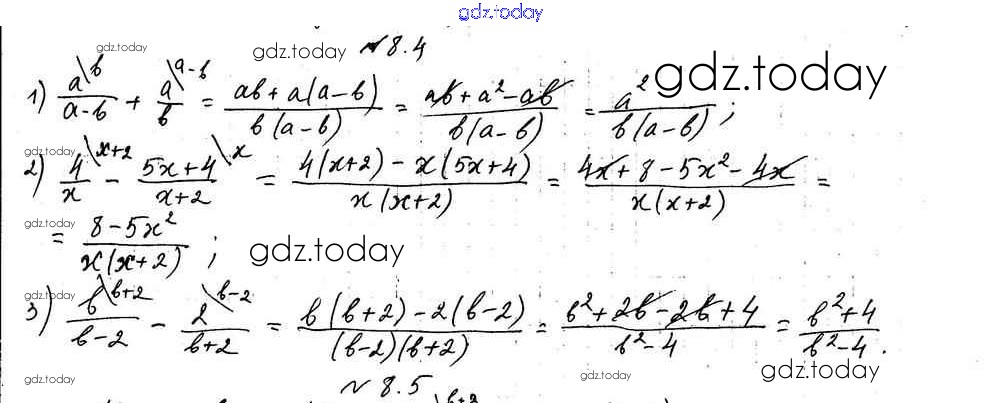 gdz.today
gdz.today
gdz.today № 8.4
1) a\b/(a-b) + a\a-b/b = (ab+a(a-b))/(b(a-b)) = (ab+a²-ab)/(b(a-b)) = a²/(b(a-b)) ;
gdz.today
gdz.today
2) 4\x+2/x - (5x+4)\x/(x+2) = (4(x+2)-x(5x+4))/(x(x+2)) = (4x+8-5x²-4x)/(x(x+2)) =
gdz.today
= (8-5x²)/(x(x+2)) ;
gdz.today
gdz.today
3) b\b+2/(b-2) - 2\b-2/(b+2) = (b(b+2)-2(b-2))/((b-2)(b+2)) = (b²+2b-2b+4)/(b²-4) = (b²+4)/(b²-4) .
gdz.today
gdz.today
gdz.today
№ 8.5